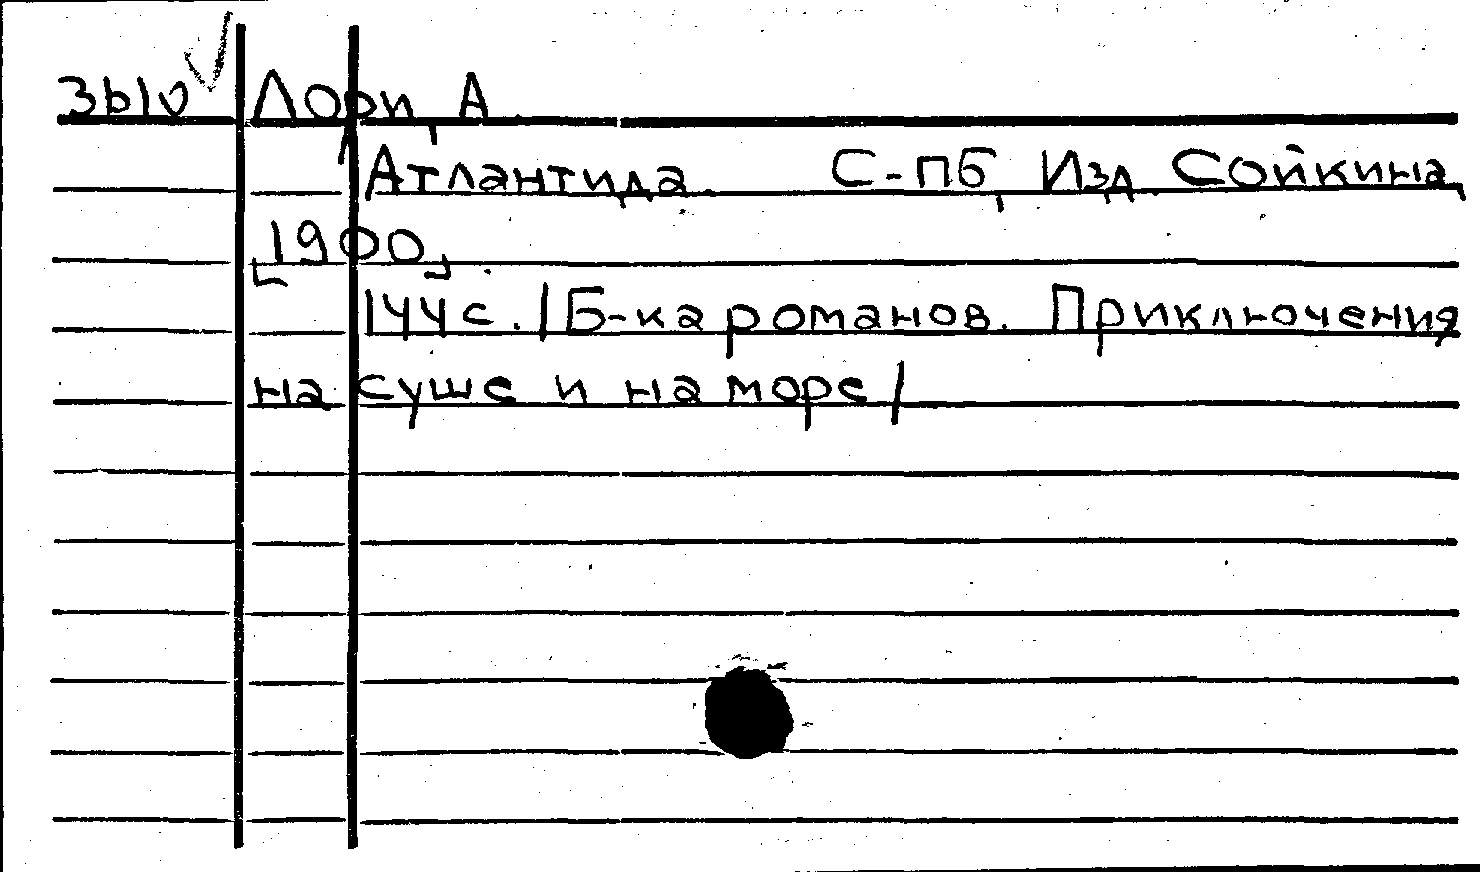 ЗЫО Лори, А.
Атлантида. С-ПБ, Изд. Сойкина,
[1900].
144с. /Б-ка романов. Приключения
на суше и на море/